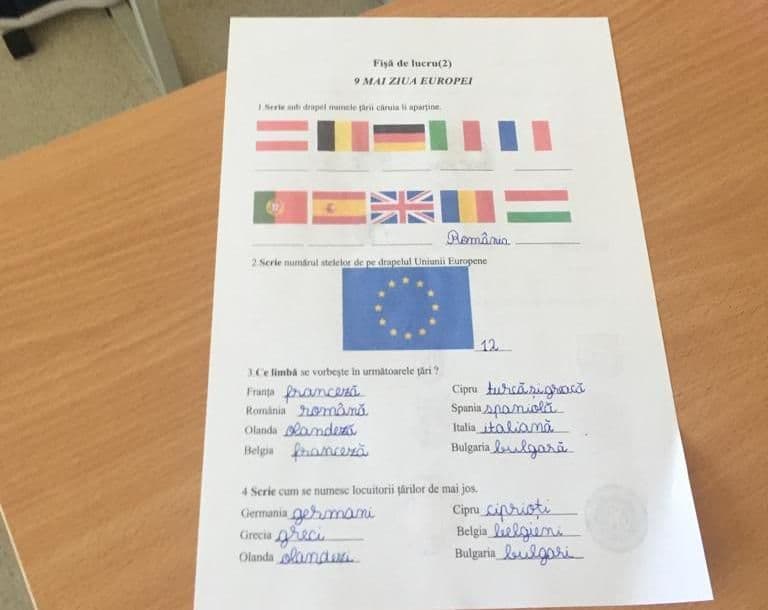 Fișă de lucru(2)
9 MAI ZIUA EUROPEI
1.Scrie sub drapel numele țării căruia îi aparține.
România
2.Scrie numărul stelelor de pe drapelul Uniunii Europene
12
3.Ce limbă se vorbește în următoarele țări ?
Franța franceză Cipru turcă și greacă
România română Spania spaniolă
Olanda olandeză Italia italiană
Belgia franceză Bulgaria bulgară
4 Scrie cum se numesc locuitorii țărilor de mai jos.
Germania germani Cipru ciprioți
Grecia greci Belgia belgieni
Olanda olandezi Bulgaria bulgari